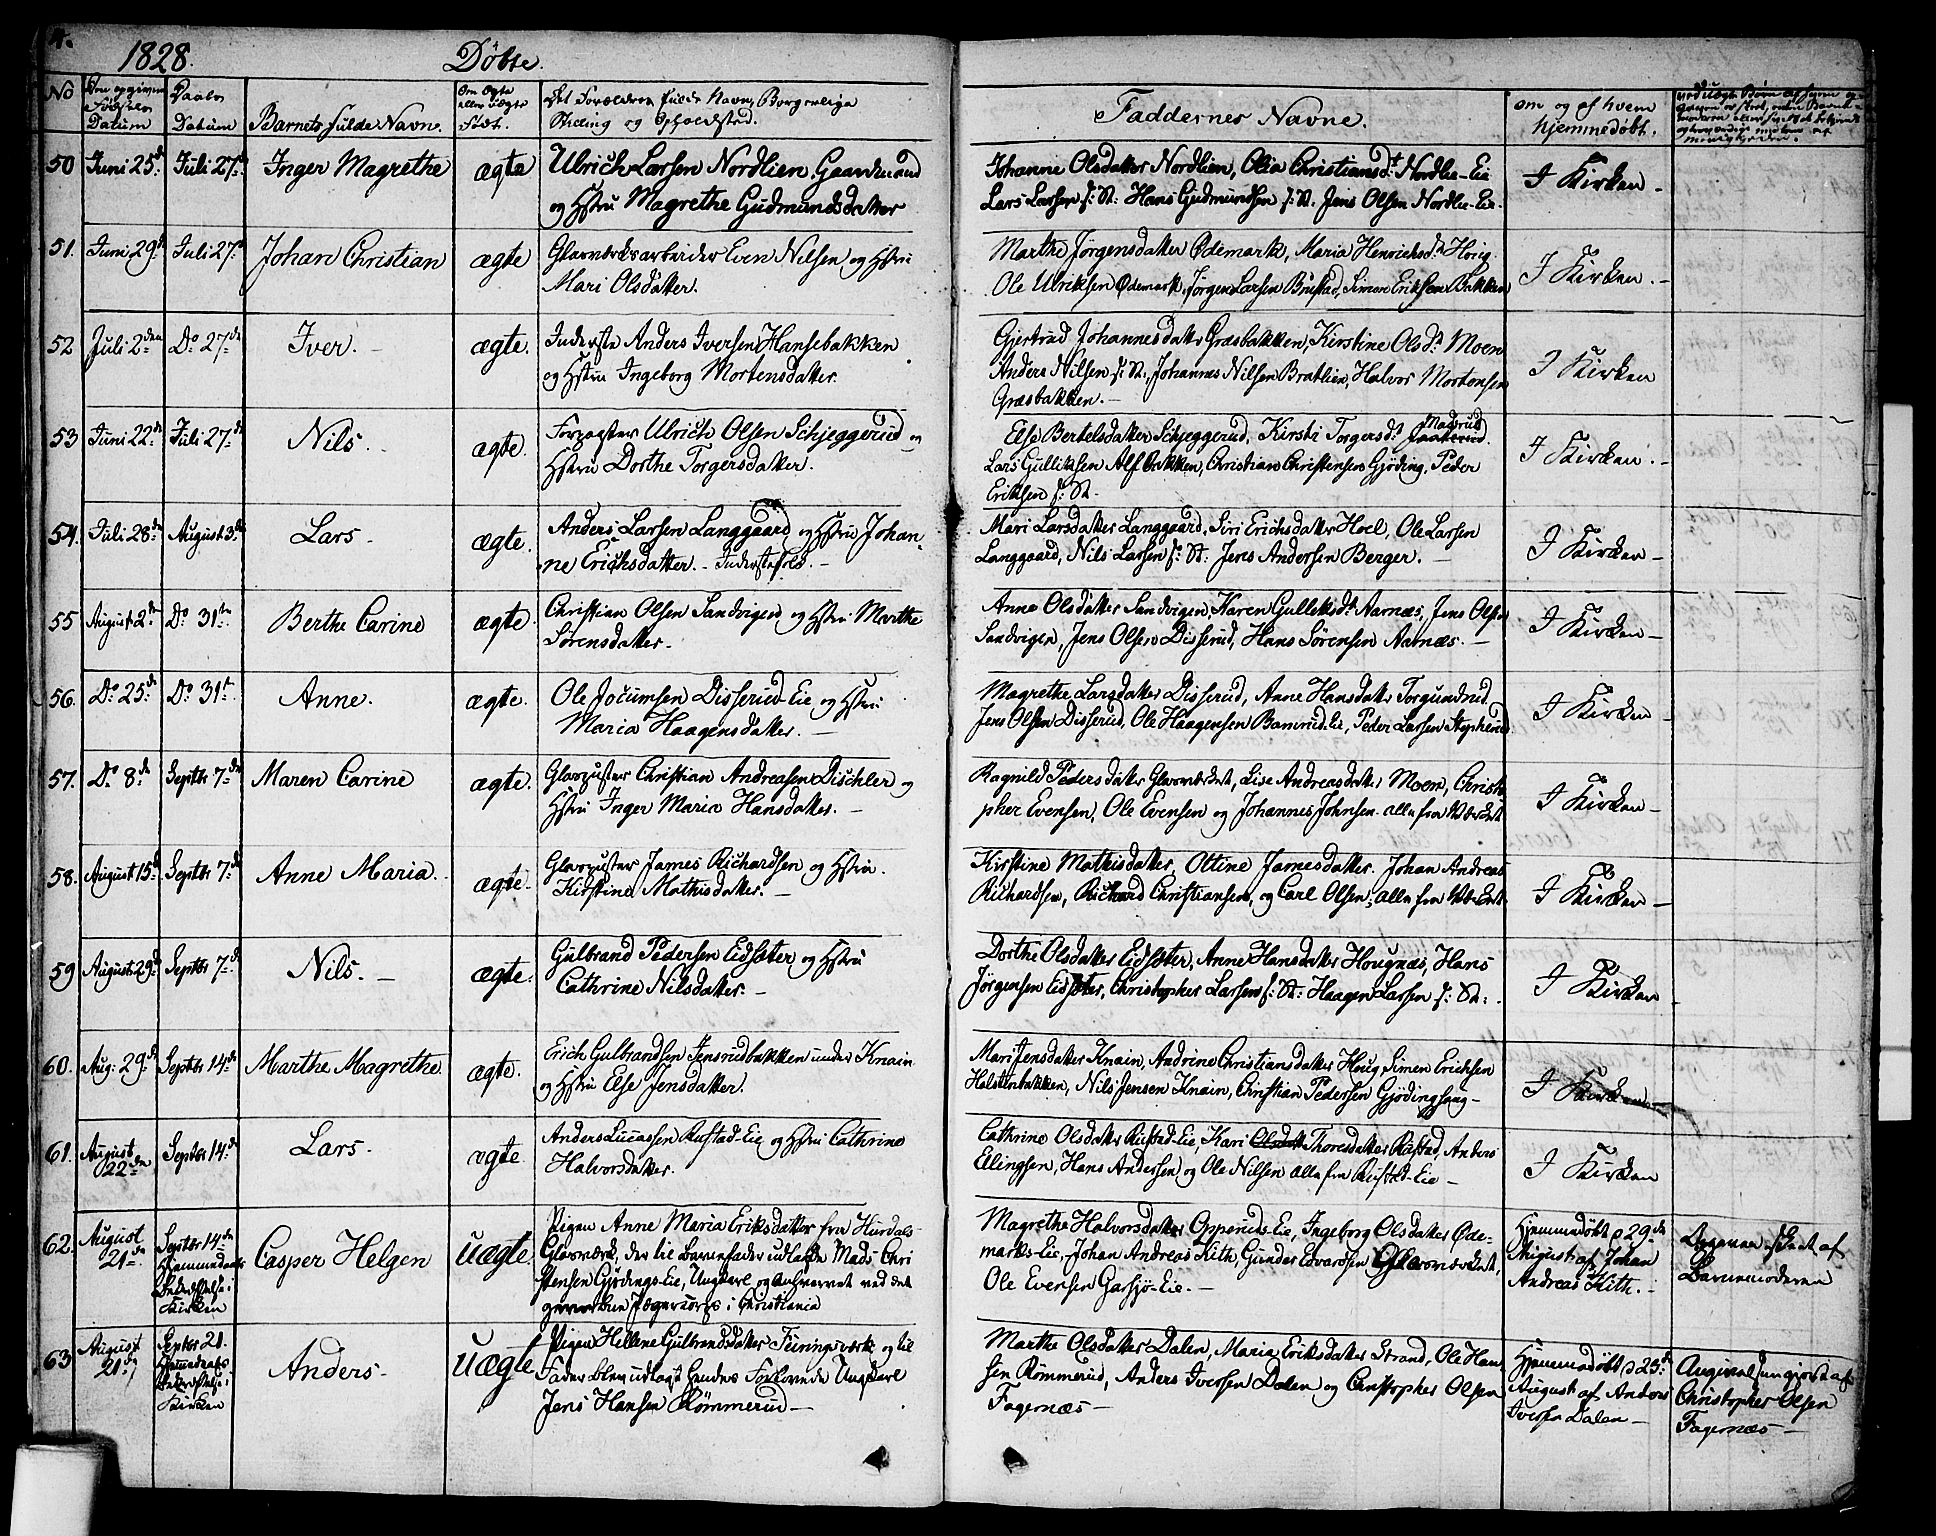 4.
1828. Döbte.
No
Den opgivne Födsels Datum
Daabs Datum
Barnets fulde Navn.
Om Ægte eller uægte Födt.
Det Forældrenes fulde Navn, Borgerlige Stilling og Opholdssted.
Faddernes Navne.
om og af hvem hjemmedøbt.
50 Juni 25de Juli 27de Inger Magrethe ægte
Ulrich Larsen Nordlien Gaardmand
og Hstru Magrethe Gudmundsdatter
Johanne Olsdatter Nordlien, Olia Christiansdt Nordlie-Eie
Lars Larsen s: St. Hans Gudmundsen s: St. Jens Olsen Nordlie-Eie.
I Kirken
51. Juni 29de Juli 27de Johan Christian ægte
Glasværksarbeider Even Nilsen og Hstru
Mari Olsdatter.
Marthe Jörgensdatter Ødemark, Maria Henrichsdr Houg.
Ole Ulriksen Ødemark, Jörgen Larsen Brustad, Simen Eriksen Bakken
I Kirken.
52 Juli 2den Do 27de Iver. ægte.
Inderste Anders Iversen Hansebakken
og Hstru Ingeborg Mortensdatter.
Gjertrud Johannesdatter Græsbakken, Kirstine Olsdr Moen
Anders Nilsen s: St., Johannes Nilsen Bratlien, Halvor Mortensen
Græsbakken.
I Kirken
53 Juni 22de Juli 27de Nils. ægte.
Forpagter Ulrich Olsen Schjeggerud og
Hstru Dorthe Torgersdatter.
Else Bertelsdatter Schjeggerud, Kirsti Torgersdr Madsrud
Lars Gulliksen Alfbakken, Christian Christensen Gjöding, Peder
Eriksen s: St.
I Kirken.
54. Juli 28de August 3de Lars ægte.
Anders Larsen Langgaard og Hstru Johan-
ne Erichsdatter. - Inderstefolk.
Mari Larsdatter Langgaard, Siri Erichsdatter Hoel, Ole Larsen
Langgaard, Nils Larsen s: St. Jens Andersen Berger.
I Kirken
55 August 2den Do 31te Berthe Carine ægte.
Christian Olsen Sandvigen og Hstru Marthe
Sörensdatter.
Anne Olsdatter Sandvigen, Karen Gulleksdr Aarnæs, Jens Olsen
Sandvigen, Jens Olsen Disserud, Hans Sörensen Aarnæs.
I Kirken
56. Do 25de Do 31te Anne. ægte.
Ole Jocumsen Disserud-Eie og Hstru
Maria Haagensdatter.
Magrethe Larsdatter Disserud, Anne Hansdatter Torgundrud
Jens Olsen Disserud, Ole Haagensen Bamrud-Eie, Peder Larsen
I Kirken
57. Do 8de Septbr 7de Maren Carine ægte.
Glaspuster Christian Andreasen Dischler og
Hstru Inger Maria Hansdatter.
Ragnild Pedersdatter Glasværket, Lise Andreasdatter Moen, Christo-
pher Evensen, Ole Evensen og Johannes Johnsen alle fra Værket
I Kirken
58. August 15de Septbr 7de Anne Maria. ægte.
Glaspuster James Richardsen og Hstru
Kirstine Mathisdatter.
Kirstine Mathisdatter, Ottine Jamesdatter. Johan Andreas
Richardsen, Richard Christiansen, og Carl Olsen; alle fra Værket
I Kirken
59 August 29de Septbr 7de Nils. ægte.
Gulbrand Pedersen Eidsæter og Hstru
Cathrine Nilsdatter.
Dorthe Olsdatter Eidsæter, Anne Hansdatter Hougnæs, Hans
Jörgensen Eidsæter, Christopher Larsen s: St: Haagen Larsen s: St:
I Kirken
60. Aug: 29de Septbr 14de Marthe Magrethe ægte.
Erich Gulbrandsen Jensrudbakken under Knain
og Hstru Else Jensdatter.
Mari Jensdatter Knain, Andrine Christiansdatter Houg, Simen Erichsen
Holstenbakken, Nils Jensen Knain, Christian Pedersen Gjödinghaug
I Kirken
61. August 22den Septbr 14de Lars. ægte.
Anders Lucassen Rustad-Eie og Hstru Cathrine
Halvorsdatter.
Cathrine Olsdatter Rustad-Eie, Kari Olsdatter Thoresdatter Rustad, Anders
Ellingsen, Hans Andersen og Ole Nilsen alle fra Rustad-Eie
I Kirken
62. August 21de Septbr 14de Hjemmedaabs Bekræftelse i Kirken Casper Helgen uægte.
Pigen Anne Maria Eriksdatter fra Hurdals
Glasværk, der til Barnefader udlagde Mads Chri
stensen Gjödings-Eie, Ungkarl og ved det
Jægercorps i Christiania
Magrethe Halvorsdatter Opperuds-Eie, Ingeborg Olsdatter Øde-
marks-Eie, Johan Andreas Kith, Gunder Edvardsen Glasværket,
Ole Evensen Garsjö-Eie.
Hjemmedöbt d 29de
August af Johan
Andreas Kith.
Angivelse skeet af
Barnemoderen
63 August 21de Septbr 21. Hjemmedaabs Bekræftelse i Kirken Anders uægte
Pigen Hellene Gulbrandsdatter Feiringsværk og til
Fader blev udlagt hendes Forlovede Ungkarl
Jens Hansen Römmerud
Marthe Olsdatter Dalen, Maria Eriksdatter Strand, Ole Han-
sen Römmerud, Anders Iversen Dalen og Christopher Olsen
Fagernæs
Hjemmedöbt d 25de
August af Anders
Iversen Dalen
Angivelsen gjort af
Christopher Olsen
Fagernæs